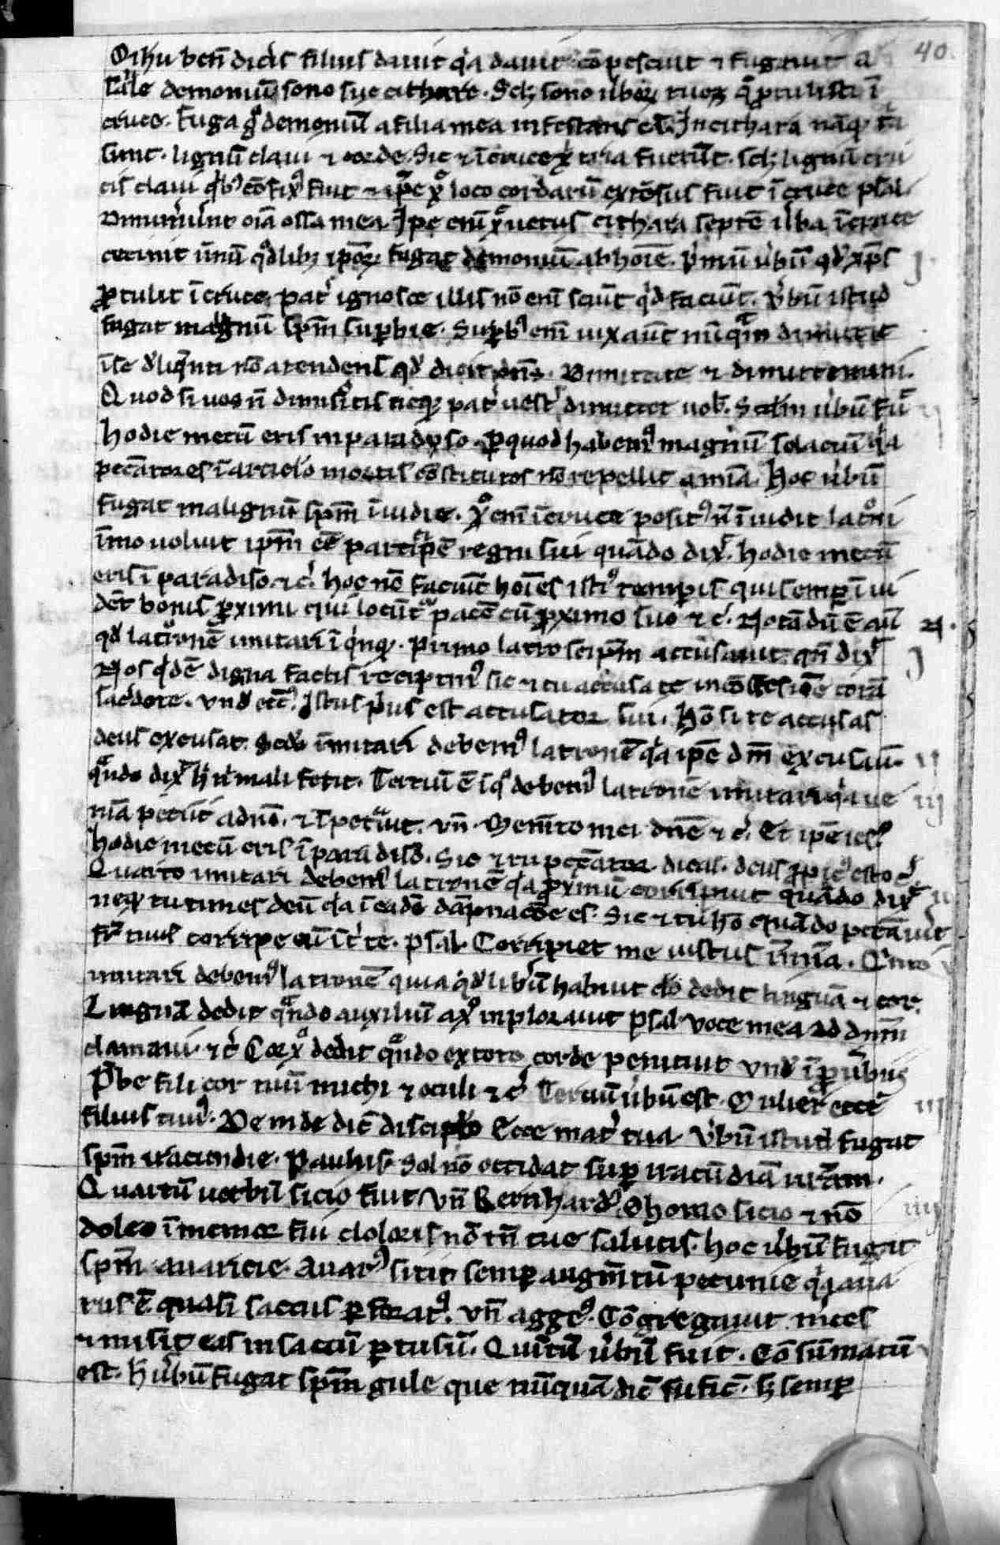 40
O ihu bn̄ dic̄is filius dauit q̇a dauit cōpescuit ⁊ fugauit a
saule demoniū sono sue cithare. Sclꝫ sono ūboꝝ tuoꝝ q̄ ꝓtulisti ī
cruce. Fuga ḡ demoniū a filia mea infestans eā. In cithara nāqꝫ t̄a
sunt. lignū claui ⁊ corde. Sic ⁊ ī cruce xp̄i tria fuerūt. sclꝫ lignū cru
cis claui q̇bꝰ cōfixꝰ fuit ⁊ ip̄e xp̄c loco cordarū extēsus fuit ī cruce psal.
Dinum̄auerūt oīa ossa mea. Ip̄e enī xp̄c uetus cithara septē ūba ī cruce
cecinit ūnū qdlibꝫ ip̄oꝝ fugat demoniū ab hoīe. P̄mū ūbū qd xp̄s
ꝓtulit ī cruce. pat̄ ignosce illis nō enī sciūt q̇d faciūt. Ūbū istud
fugat malignū sp̄m suꝑbie. Suꝑbꝰ enī uix aut nūq̄ dimittit
ī se dliq̄nti nō atendens qd dicit dn̄s. Dimittite ⁊ dimittemini.
Quod si uos n̄ dimis̄itis necqꝫ pat̄ uest̄ dimittet uob̄. Scdm ūbū fū
hodie mecū eris in paradyso. ꝑ quod habemꝰ magnū solaciū q̇a
pec̄atores ī articlo mortis cōstitutos nō repellit a mīa. Hoc ūbū
fugat malignū sp̄m īuidie. Xp̄c enī ī cruce positꝰ n̄ īuidit lat̄oni
īmo voluit ip̄m eē particip̄e regni sui quādo dix̄. hodie mecū
eris ī paradiso ⁊ c̄. hoc nō faciūt hoīes istiꝰ tempis qui semꝑ īui
dēt bonis ꝓximi qui locūt̄ pacē cū ꝓximo suo ⁊ c̄. Notādū ē aū
qd lat̄onē imitari ī q̇nqꝫ. Primo latro seip̄m accusauit. qn̄ dix̄
Nos q̇dē digna factis recipimꝰ sic ⁊ tu accusa te in cōfessiōe corā
sac̄dote. vnd̄ ecc̄s Iustus p̄us est accusator sui. Hō si te accusas
deus excusat. Scdo imitari debemꝰ latronē q̇a ip̄e dm̄ excusauit
q̄ndo dix̄ h̄ n̄l mali fecit. Terciū ē ī q̇ debemꝰ latronē imitari q̇a ue
niā petiit a dn̄o. ⁊ īpet̄uit. vn̄. Mem̄to mei dn̄e ⁊ c̄. Et ip̄e ies̄
hodie mecū eris ī paradiso. Sic ⁊ tu pec̄ator dicas. deus ꝓpiciꝰ esto
Quarto imitari debemꝰ latronē q̇a ꝓximū corripuit quādo dix̄
neqꝫ tu times deū q̇a ī eadē dāpnacōe es. Sic ⁊ tu hō quādo peccāuit
fr̄ tuus corripe eū īt̄ te. psal. Corripiet me iustus ī mīa. Quito
imitari debemꝰ latronē quia q̇dlibꝫ habuit deo dedit linguā ⁊ cor.
Linguā dedit q̄ndo auxiliū a xp̄o inplorauit psal. Voce mea ad dnm̄
clamaui. ⁊ c̄ Cor xp̄o dedit q̄ndo ex toto corde penituit vnd̄ ī ꝓūbiis
P̄be fili cor tuū michi ⁊ oculi ⁊ c̄. Terciū ūbū est. Mulier ecce
filius tuus. Deinde dic̄ discipulo Ecce mat̄ tua. Ūbū istud fugat
sp̄m iracundie. Paulus. Sol nō occidat suꝑ iracūdiā ur̄am.
Quartū uerbū sicio fuit. vn̄ Bernhardꝰ O homo sicio ⁊ nō
doleo īmemor fui doloris nō tn̄ tue salutis. hoc ūbū fugat
sp̄m auaricie. Auarꝰ sitit semꝑ augm̄tū pecunie q̇a aua
rus ē quasi saccus ꝑforatꝰ. vn̄ aggeꝰ. Cōgregauit m̄ces
⁊ misit eas in saccū ꝑtusū. Quītū ūbū fuit. Cōsūmatū
est. h̄ ūbū fugat sp̄m gule que nūquā dic̄ sufic̄. sꝫ semꝑ